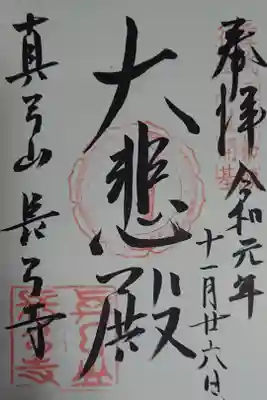 奉拝 令和元年
十一月廿六日
大悲殿
真弓山 長弓寺